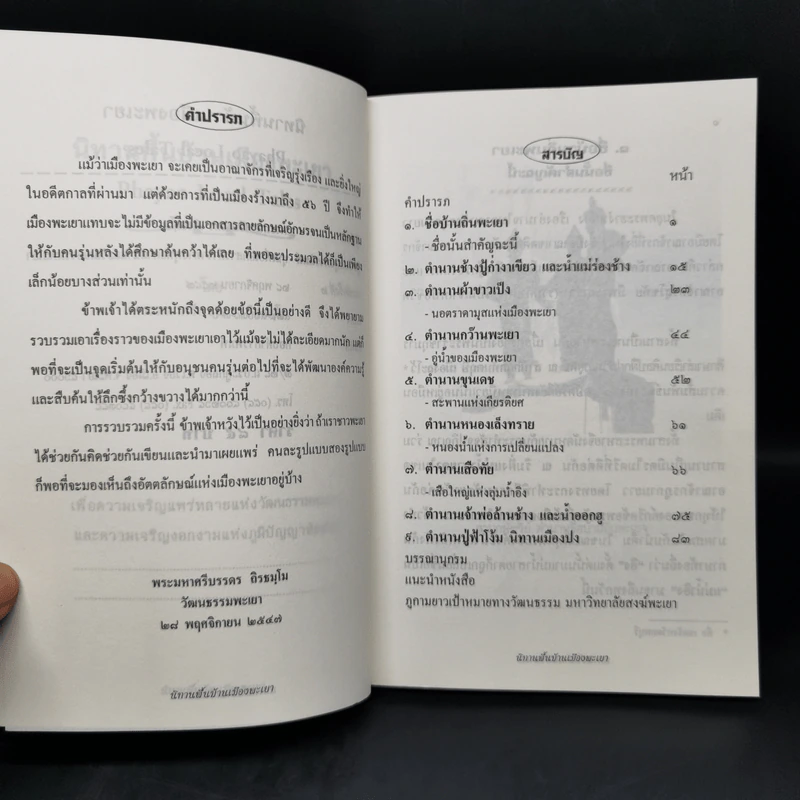 คำปรารภ
แม้ว่าเมืองพะเยา จะเคยเป็นอาณาจักรที่เจริญรุ่งเรือง และยิ่งใหญ่
ในอดีตกาลที่ผ่านมา แต่ด้วยการที่เป็นเมืองร้างมาถึง ๕๖ ปี จึงทำให้
เมืองพะเยาแทบจะไม่มีข้อมูลที่เป็นเอกสารลายลักษณ์อักษรจนเป็นหลักฐาน
ให้กับคนรุ่นหลังได้ศึกษาค้นคว้าได้เลย ที่พอจะประมวลได้ก็เป็นเพียง
เล็กน้อยบางส่วนเท่านั้น
ข้าพเจ้าได้ตระหนักถึงจุดด้อยข้อนี้เป็นอย่างดี จึงได้พยายาม
รวบรวมเอาเรื่องราวของเมืองพะเยาเอาไว้แม้จะไม่ได้ละเอียดมากนัก แต่ก็
พอที่จะเป็นจุดเริ่มต้นให้กับอนุชนคนรุ่นต่อไปที่จะได้พัฒนาองค์ความรู้
และสืบค้นให้ลึกซึ้งกว้างขวางได้มากกว่านี้
การรวบรวมครั้งนี้ ข้าพเจ้าหวังไว้เป็นอย่างยิ่งว่า ถ้าเราชาวพะเยา
ได้ช่วยกันคิดช่วยกันเขียนและนำมาเผยแพร่ คนละรูปแบบสองรูปแบบ
ก็พอที่จะมองเห็นถึงอัตตลักษณ์แห่งเมืองพะเยาอยู่บ้าง
พระมหาศรีบรรดร ถิรธมฺโม
วัฒนธรรมพะเยา
๒๘ พฤศจิกายน ๒๕๔๗
นิทานพื้นบ้านเมืองพะเยา
สารบัญ
หน้า
คำปรารภ
๑. ชื่อบ้านถิ่นพะเยา ๑
- ชื่อนั้นสำคัญฉะนี้
๒. ตำนานช้างปู้ก่ำงาเขียว และน้ำแม่ร่องช้าง ๑๕
๓. ตำนานผ้าขาวเป็ง ๒๓
- นอตราดามุสแห่งเมืองพะเยา
๔. ตำนานกว๊านพะเยา ๔๔
- อู่น้ำของเมืองพะเยา
๕. ตำนานขุนเดช ๕๒
- สะพานแห่งเกียรติยศ
๖. ตำนานหนองเล็งทราย ๖๑
- หนองน้ำแห่งการเปลี่ยนแปลง
๗. ตำนานเสือทัย ๖๖
- เสือใหญ่แห่งลุ่มน้ำอิง
๘. ตำนานเจ้าพ่อล้านช้าง และน้ำออกสู ๗๕
๙. ตำนานปู่ฟ้าโง้ม นิทานเมืองปง ๘๓
บรรณานุกรม
แนะนำหนังสือ
ภูกามยาวเป้าหมายทางวัฒนธรรม มหาวิทยาลัยสงฆ์พะเยา
นิทานพื้นบ้านเมืองพะเยา